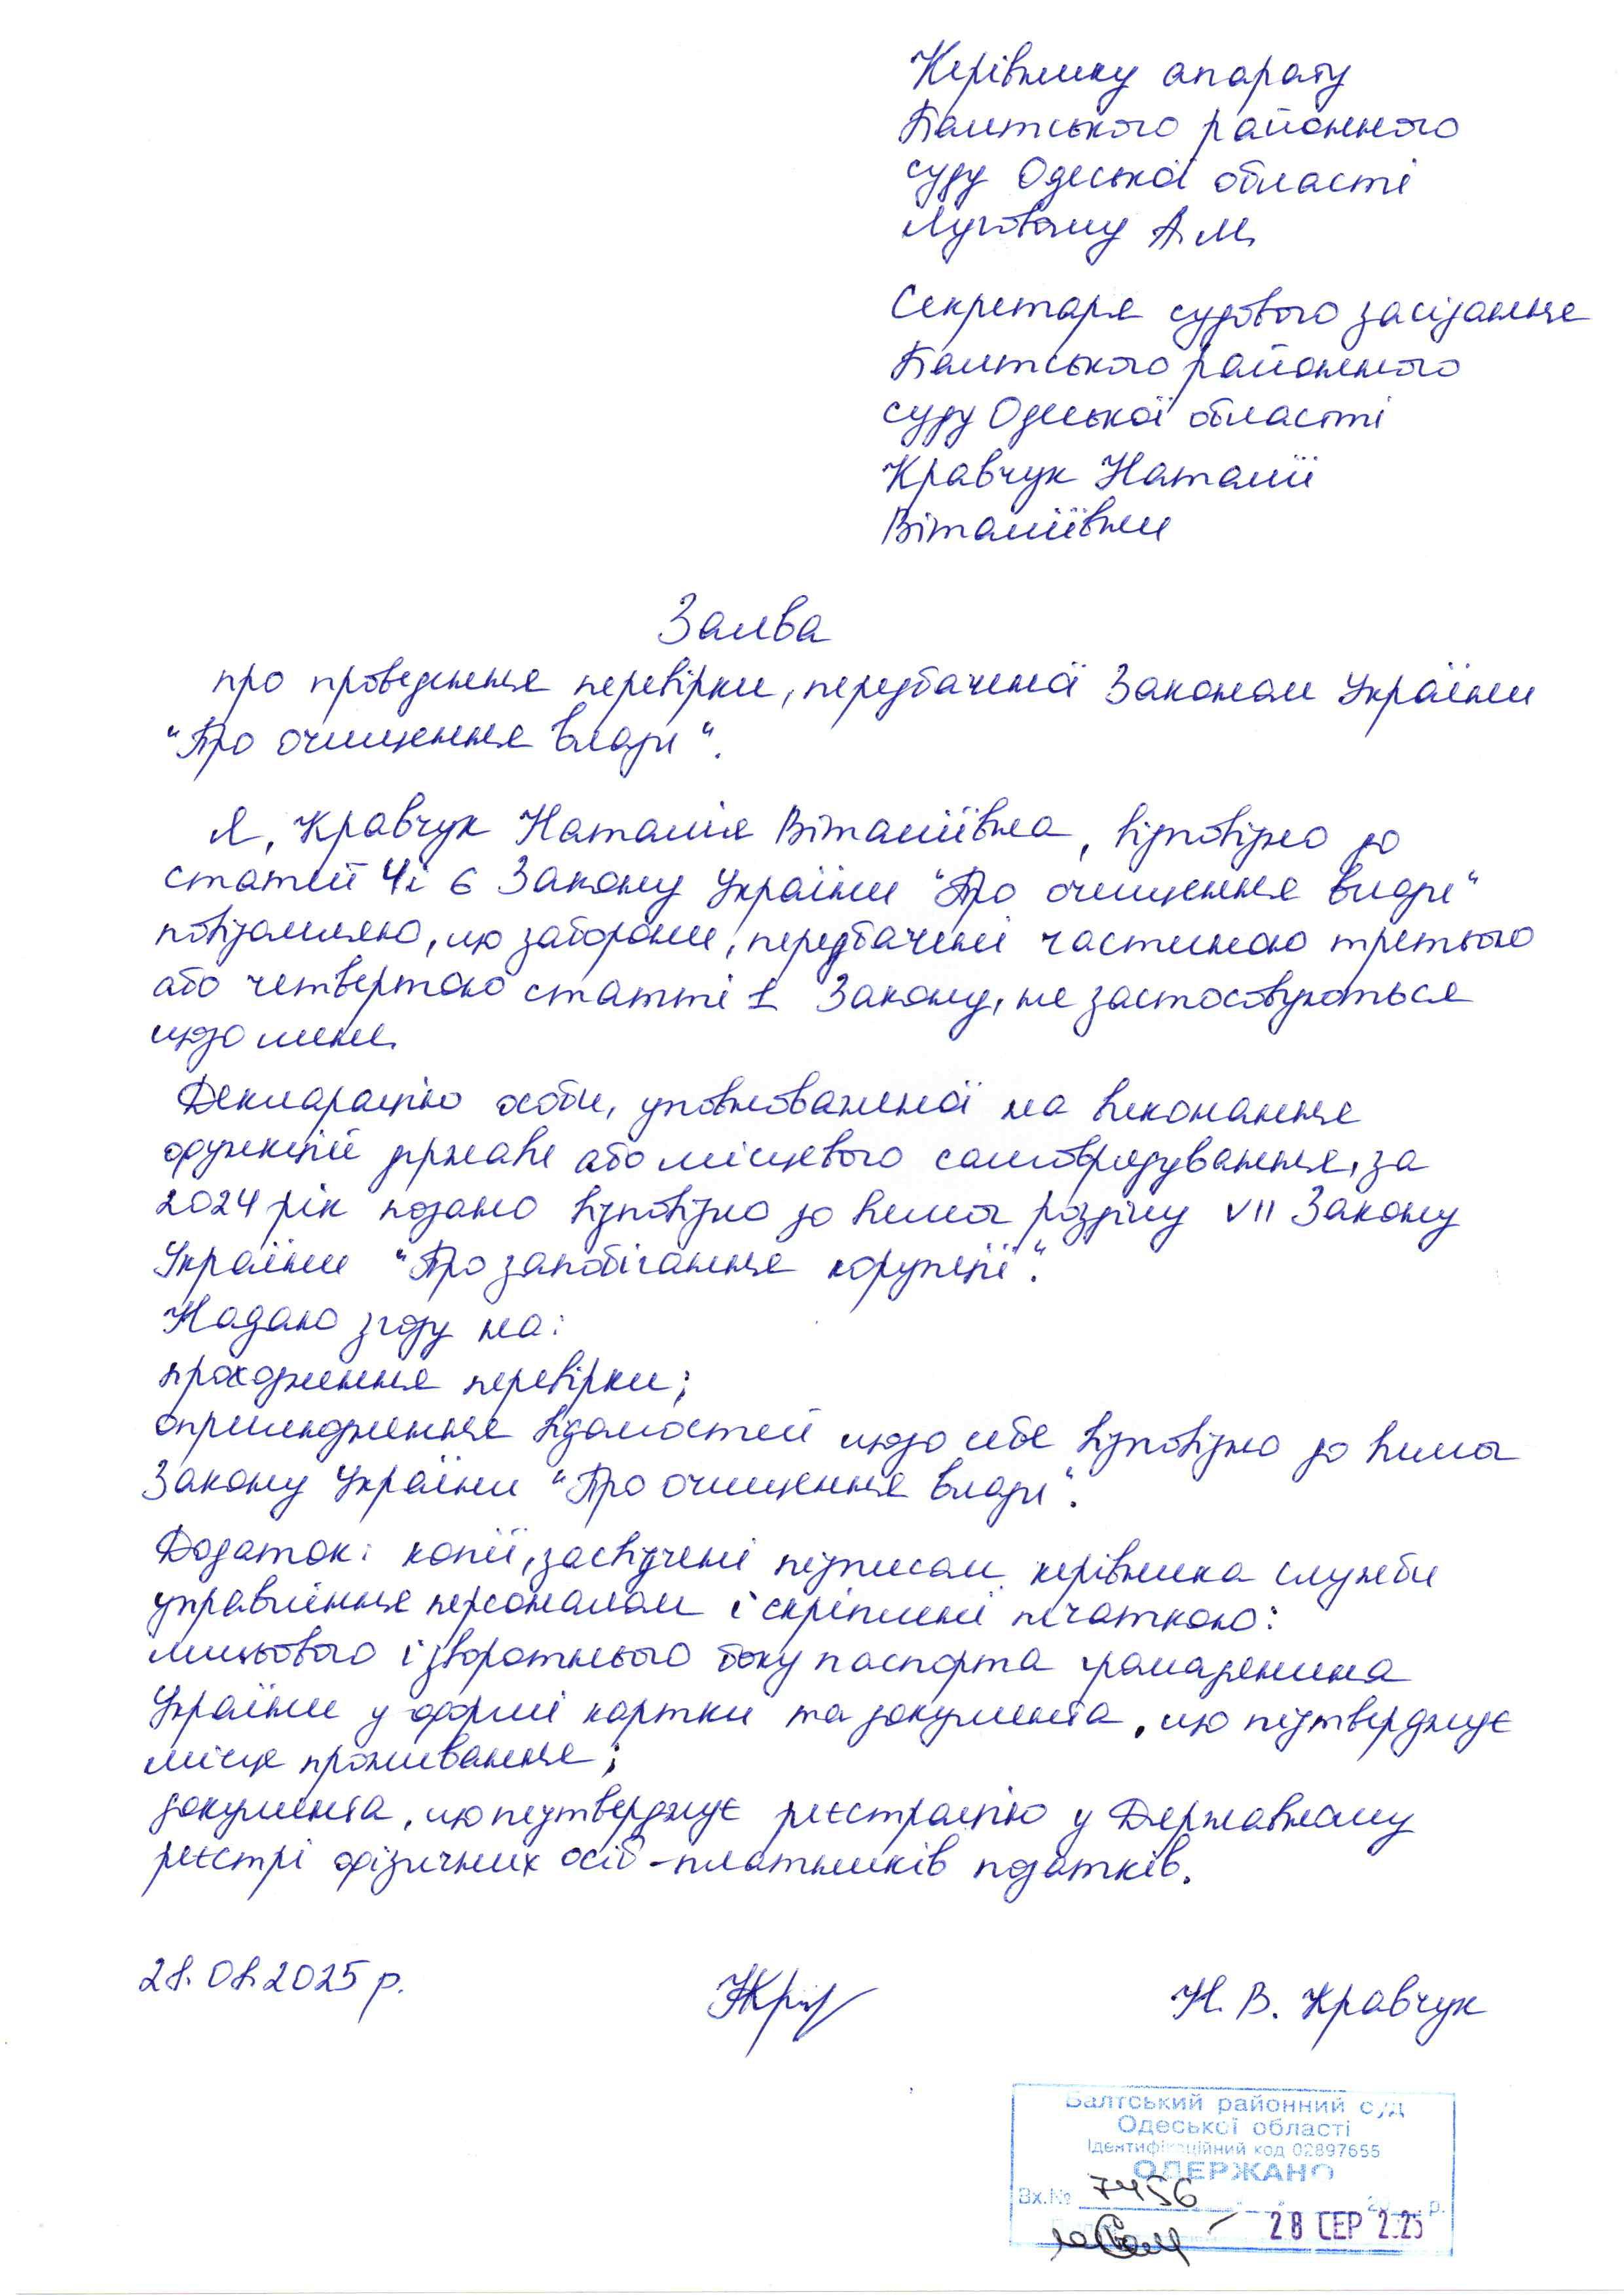 Керівнику апарату
Балтського районного
суду Одеської області
Луговому А.М.
Секретаря судового засідання
Балтського районного
суду Одеської області
Кравчук Наталії
Віталіївни
Заява
про проведення перевірки, передбаченої Законом України
"Про очищення влади".
Я, Кравчук Наталія Віталіївна, відповідно до
статей 4 і 6 Закону України "Про очищення влади"
повідомляю, що заборони, передбачені частиною третьою
або четвертою статті 1 Закону, не застосовуються
щодо мене.
Декларацію особи, уповноваженої на виконання
функцій держави або місцевого самоврядування, за
2024 рік подано відповідно до вимог розділу VII Закону
України "Про запобігання корупції".
Надаю згоду на:
проходження перевірки;
оприлюднення відомостей щодо себе відповідно до вимог
Закону України "Про очищення влади".
Додаток: копії, засвідчені підписом керівника служби
управління персоналом і скріплені печаткою:
лицьового і зворотнього боку паспорта громадянина
України у формі картки та документа, що підтверджує
місце проживання;
документа, що підтверджує реєстрацію у Державному
реєстрі фізичних осіб - платників податків.
28.08.2025 р. Н. В. Кравчук
Балтський районний суд
Одеської області
Ідентифікаційний код 02897655
ОДЕРЖАНО
Вх.№ 7456
28 СЕР 2025